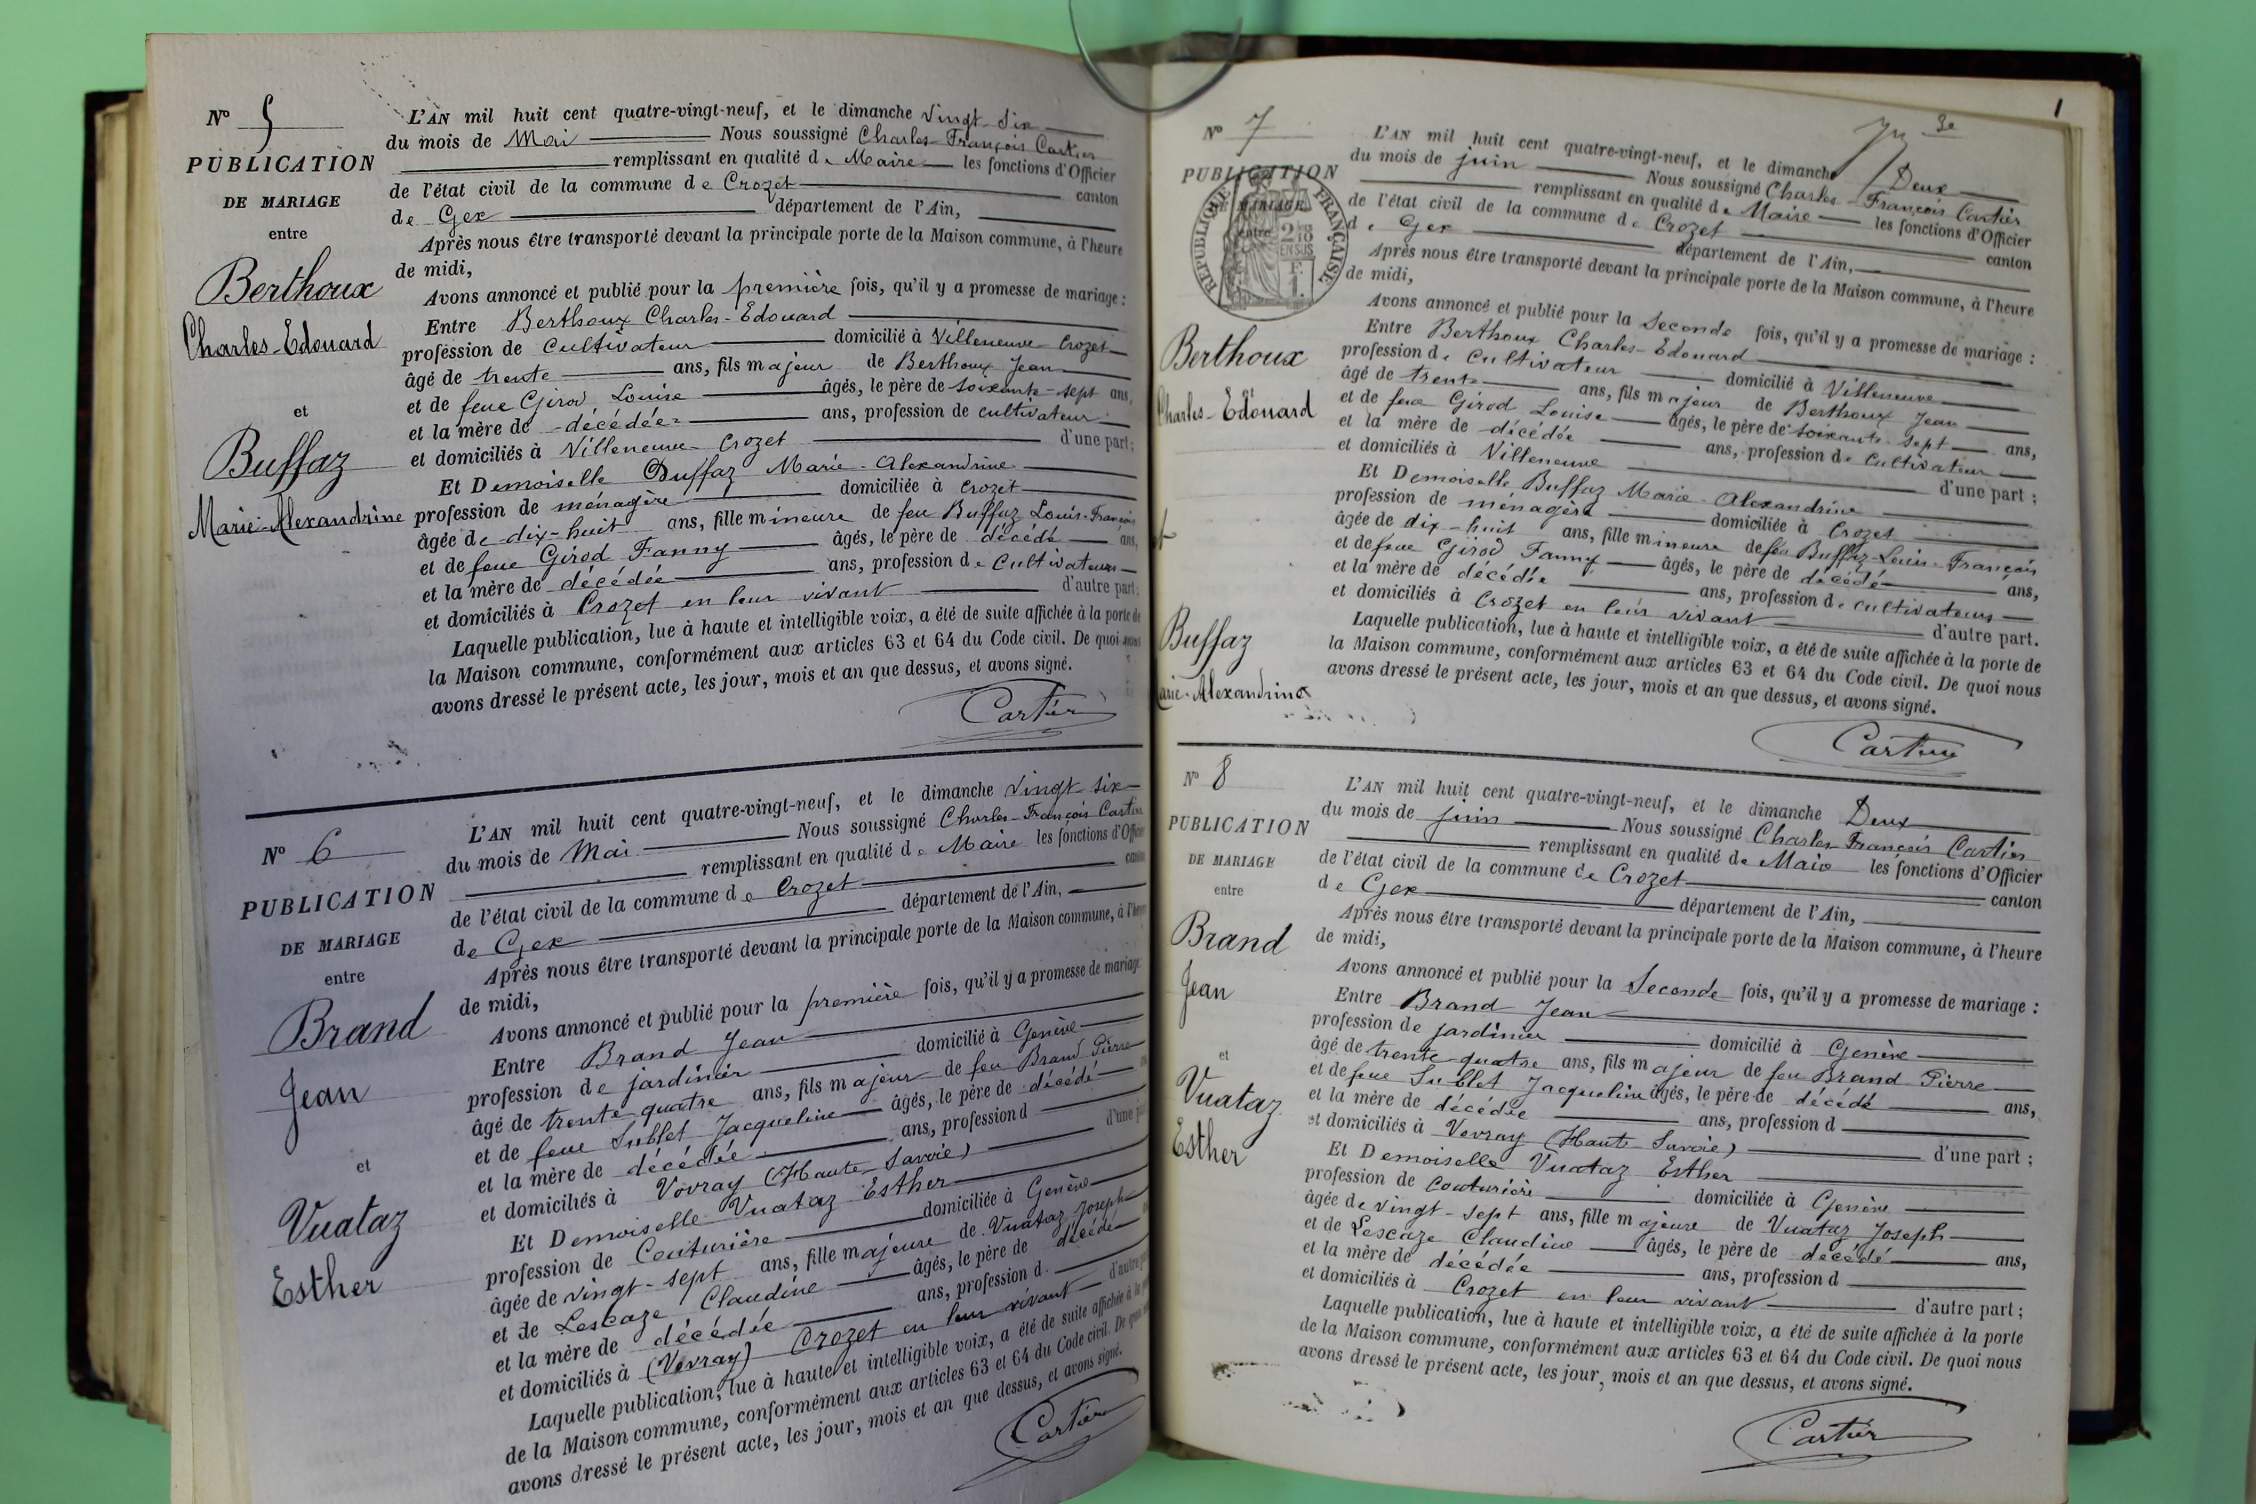 N° 5
PUBLICATION
DE MARIAGE
entre
Berthoux
Charles-Edouard
et
Buffaz
Marie-Alexandrine
L'AN mil huit cent quatre-vingt-neuf, et le dimanche vingt-six
du mois de Mai Nous soussigné Charles-François Cartier
remplissant en qualité de Maire les fonctions d'Officier
de l'état civil de la commune de Crozet canton
de Gex département de l'Ain,
Après nous être transporté devant la principale porte de la Maison commune, à l'heure
de midi,
Avons annoncé et publié pour la première fois, qu'il y a promesse de mariage :
Entre Berthoux Charles-Edouard
profession de Cultivateur domicilié à Villeneuve Crozet
âgé de trente ans, fils majeur de Berthoux Jean
et de feue Girod Louise âgés, le père de soixante-sept ans,
et la mère de décédée ans, profession de cultivateur
et domiciliés à Villeneuve Crozet d'une part ;
Et Demoiselle Buffaz Marie-Alexandrine
profession de ménagère domiciliée à Crozet
âgée de dix-huit ans, fille mineure de feu Buffaz Louis-François
et de feue Girod Fanny âgés, le père de décédé ans,
et la mère de décédée ans, profession de Cultivateurs
et domiciliés à Crozet en leur vivant d'autre part.
Laquelle publication, lue à haute et intelligible voix, a été de suite affichée à la porte de
la Maison commune, conformément aux articles 63 et 64 du Code civil. De quoi nous
avons dressé le présent acte, les jour, mois et an que dessus, et avons signé.
Cartier
N° 6
PUBLICATION
DE MARIAGE
entre
Brand
Jean
et
Vuataz
Esther
L'AN mil huit cent quatre-vingt-neuf, et le dimanche vingt six
du mois de Mai Nous soussigné Charles-François Cartier
remplissant en qualité de Maire les fonctions d'Officier
de l'état civil de la commune de Crozet canton
de Gex département de l'Ain,
Après nous être transporté devant la principale porte de la Maison commune, à l'heure
de midi,
Avons annoncé et publié pour la première fois, qu'il y a promesse de mariage
Entre Brand Jean
profession de jardinier domicilié à Genève
âgé de trente quatre ans, fils majeur de feu Brand Pierre
et de feue Sublet Jacqueline âgés, le père de décédé
et la mère de décédée ans, profession d
et domiciliés à Vovray (Haute Savoie) d'une part
Et Demoiselle Vuataz Esther
profession de Couturière domiciliée à Genève
âgée de vingt-sept ans, fille majeure de Vuataz Joseph
et de Lescaze Claudine âgés, le père de décédé
et la mère de décédée ans, profession d
et domiciliés à (Vovray) Crozet en leur vivant d'autre part
Laquelle publication, lue à haute et intelligible voix, a été de suite affichée à la porte
de la Maison commune, conformément aux articles 63 et 64 du Code civil. De quoi nous
avons dressé le présent acte, les jour, mois et an que dessus, et avons signé.
Cartier
1
3e
N° 7
PUBLICATION
DE MARIAGE
entre
RÉPUBLIQUE FRANÇAISE
2/10
EN SUS
Berthoux
Charles-Edouard
et
Buffaz
arie-Alexandrine
L'AN mil huit cent quatre-vingt-neuf, et le dimanche Deux
du mois de juin Nous soussigné Charles-François Cartier
remplissant en qualité de Maire les fonctions d'Officier
de l'état civil de la commune de Crozet canton
de Gex département de l'Ain,
Après nous être transporté devant la principale porte de la Maison commune, à l'heure
de midi,
Avons annoncé et publié pour la Seconde fois, qu'il y a promesse de mariage :
Entre Berthoux Charles-Edouard
profession de Cultivateur domicilié à Villeneuve
âgé de trente ans, fils majeur de Berthoux Jean
et de feue Girod Louise âgés, le père de soixante-sept ans,
et la mère de décédée ans, profession de Cultivateur
et domiciliés à Villeneuve d'une part ;
Et Demoiselle Buffaz Marie-Alexandrine
profession de ménagère domiciliée à Crozet
âgée de dix-huit ans, fille mineure de feu Buffaz-Louis-François
et de feue Girod Fanny âgés, le père de décédé ans,
et la mère de décédée ans, profession de cultivateurs
et domiciliés à Crozet en leur vivant d'autre part.
Laquelle publication, lue à haute et intelligible voix, a été de suite affichée à la porte de
la Maison commune, conformément aux articles 63 et 64 du Code civil. De quoi nous
avons dressé le présent acte, les jour, mois et an que dessus, et avons signé.
Cartier
N° 8
PUBLICATION
DE MARIAGE
entre
Brand
Jean
et
Vuataz
Esther
L'AN mil huit cent quatre-vingt-neuf, et le dimanche Deux
du mois de juin Nous soussigné Charles François Cartier
remplissant en qualité de Maire les fonctions d'Officier
de l'état civil de la commune de Crozet canton
de Gex département de l'Ain,
Après nous être transporté devant la principale porte de la Maison commune, à l'heure
de midi,
Avons annoncé et publié pour la Seconde fois, qu'il y a promesse de mariage :
Entre Brand Jean
profession de jardinier domicilié à Genève
âgé de trente quatre ans, fils majeur de feu Brand Pierre
et de feue Sublet Jacqueline âgés, le père de décédé ans,
et la mère de décédée ans, profession d
et domiciliés à Vovray (Haute Savoie) d'une part ;
Et Demoiselle Vuataz Esther
profession de Couturière domiciliée à Genève
âgée de vingt-sept ans, fille majeure de Vuataz Joseph
et de Lescaze Claudine âgés, le père de décédé ans,
et la mère de décédée ans, profession d
et domiciliés à Crozet en leur vivant d'autre part ;
Laquelle publication, lue à haute et intelligible voix, a été de suite affichée à la porte
de la Maison commune, conformément aux articles 63 et 64 du Code civil. De quoi nous
avons dressé le présent acte, les jour, mois et an que dessus, et avons signé.
Cartier